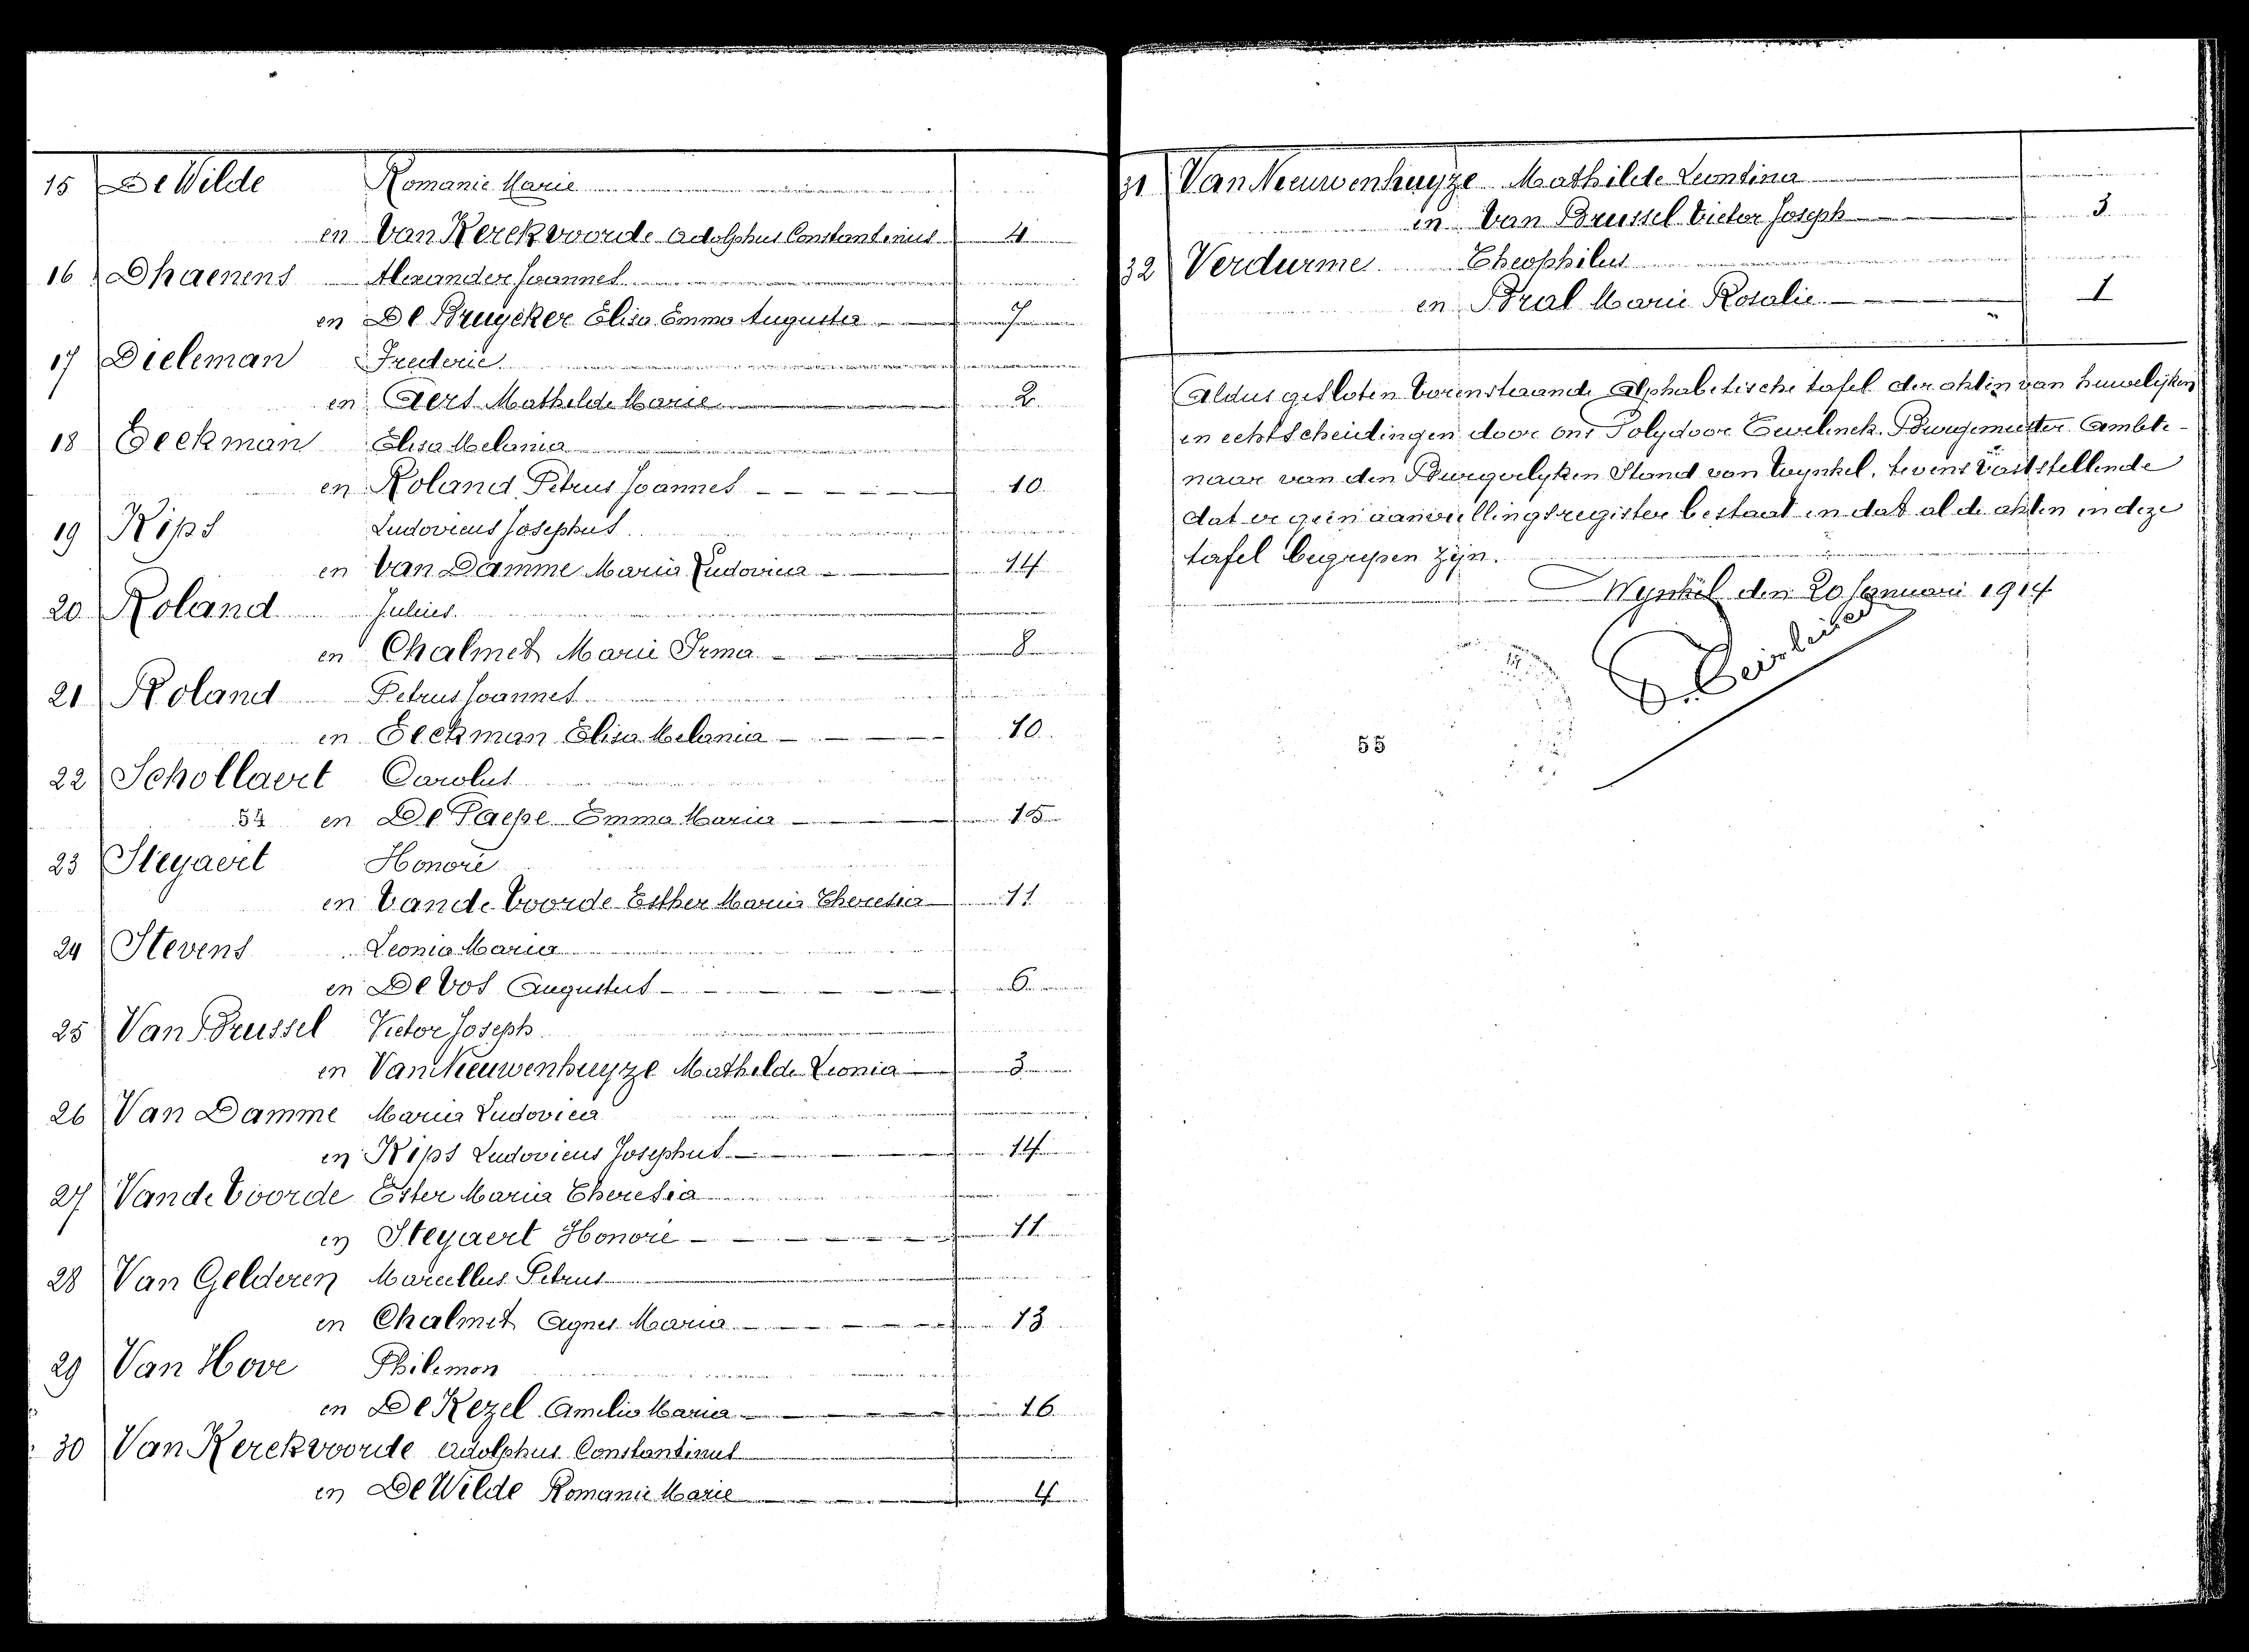 15 De Wilde Romanie Marie
en Van Kerckvoorde Adolphus Constantinus 4
16 Dhaenens Alexander Joannes
en De Bruycker Elisa Emma Augusta 7
17 Dieleman Frederic
en Aers Mathilde Marie 2
18 Eeckman Elisa Melania
en Roland Petrus Joannes 10
19 Kips Ludovicus Josephus
en Van Damme Maria Ludovica 14
20 Roland Julius
en Chalmet Marie Irma 8
21 Roland Petrus Joannes
en Eeckman Elisa Melania 10
22 Schollaert Carolus
54 en De Paepe Emma Maria 15
23 Steyaert Honoré
en Van de Voorde Esther Maria Theresia 11
24 Stevens Leonia Maria
en De Vos Augustus 6
25 Van Brussel Victor Joseph
en Van Nieuwenhuyze Mathilde Leonia 3
26 Van Damme Maria Ludovica
en Kips Ludovicus Josephus 14
27 Van de Voorde Ester Maria Theresia
en Steyaert Honoré 11
28 Van Gelderen Marcellus Petrus
en Chalmet Agnes Maria 13
29 Van Hove Philemon
en De Kezel Amelia Maria 16
30 Van Kerckvoorde Adolphus Constantinus
en De Wilde Romanie Marie 4
31 Van Nieuwenhuyze Mathilde Leontina
en Van Brussel Victor Joseph 3
32 Verdurme Theophilus
en Bral Marie Rosalie 1
Aldus gesloten vorenstaande Alphabetische tafel der akten van huwelijken
en echtscheidingen door ons Polydoor Burgemeester Ambte-
naar van den Burgerlyken Stand van Wynkel, tevens vaststellende
dat er geen aanvullingsregister bestaat en dat al de akten in deze
tafel begrepen zyn.
Wynkel den 20 Januari 1914
55